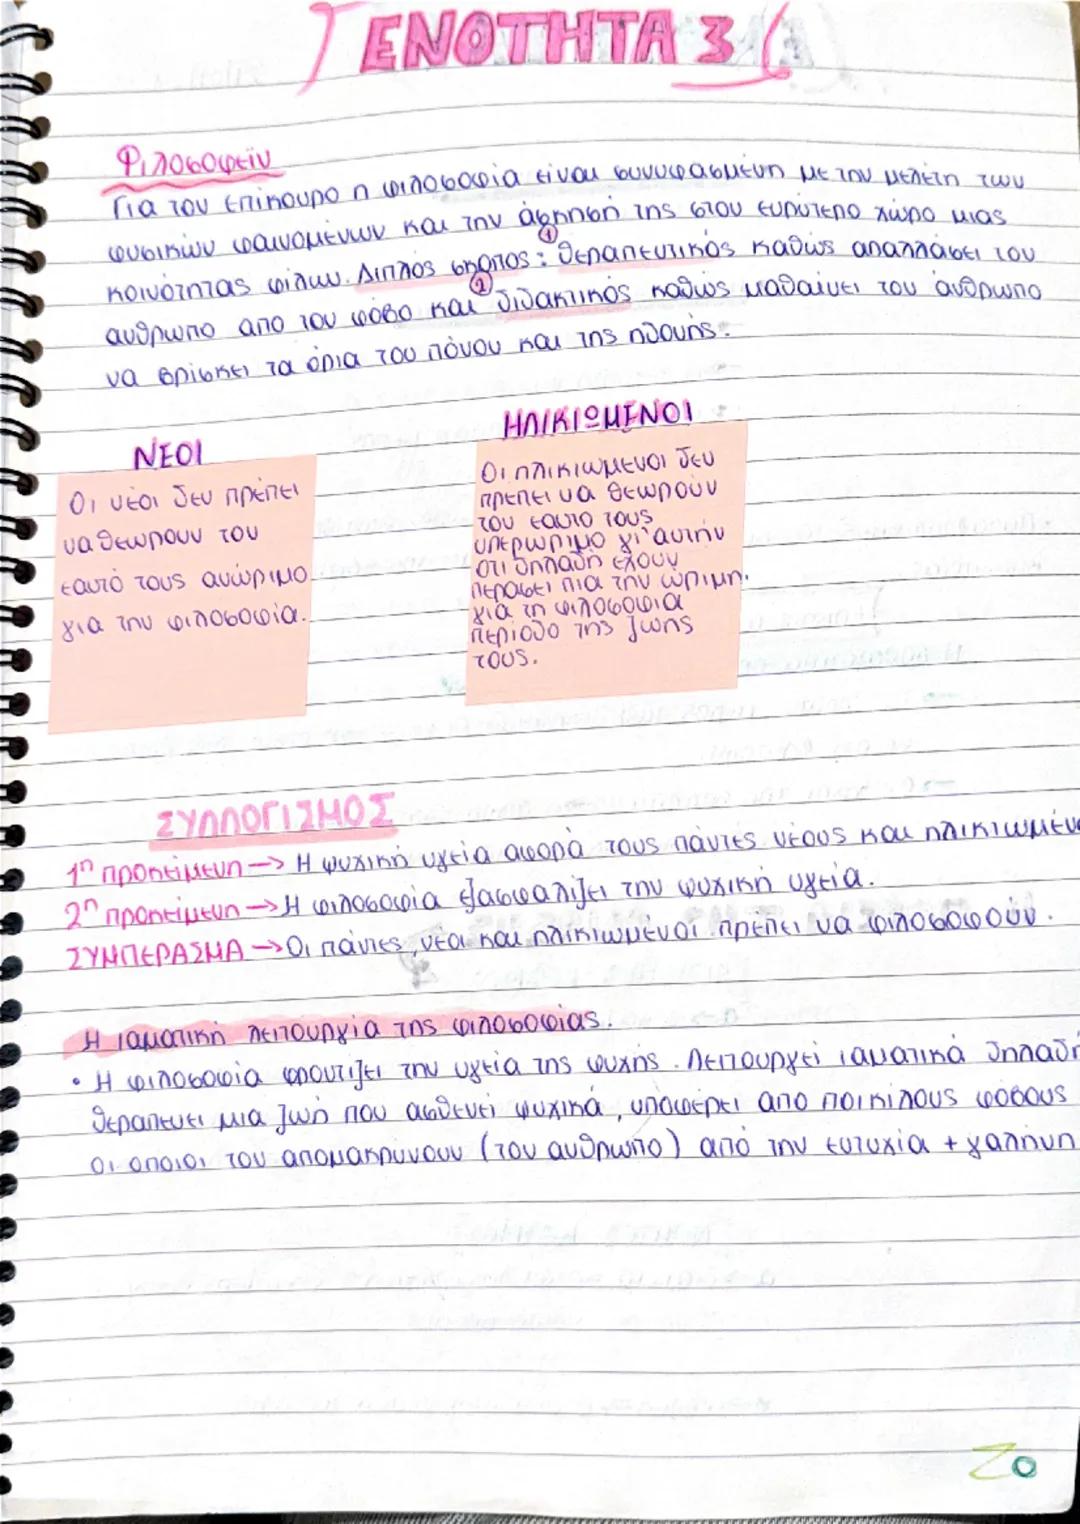 ΕΝΟΤΗΤΑ 3
Φιλοσοφείν
Για τον Επίκουρο η φιλοσοφία είναι συνυφασμένη με την μελέτη των
φυσικών φαινομένων και την άσκηση της στον ευρύτερο χώρο μιας
κοινότητας φίλων. Διπλός σκοπός: ① θεραπευτικός καθώς απαλλάσει τον
ανθρωπο απο τον φόβο και ② διδακτικός καθώς μαθαίνει τον άνθρωπο
να βρίσκει τα όρια του πόνου και της ηδονής.
ΝΕΟΙ
Οι νέοι δεν πρέπει
να θεωρουν τον
εαυτό τους ανώριμο
για την φιλοσοφία.
ΗΛΙΚΙΩΜΕΝΟΙ
Οι ηλικιωμενοι δεν
πρεπει να θεωρούν
τον εαυτο τους
υπερωριμο γι'αυτήν
οτι δηλαδη έχουν
περάσει πια την ώριμη.
για τη φιλοσοφια
περίοδο της ζωης
τους.
ΣΥΛΛΟΓΙΣΜΟΣ
1η προκειμενη → Η ψυχικη υγεία αφορά τους πάντες νέους και ηλικιωμένο
2η προκειμενη → Η φιλοσοφία εξασφαλίζει την ψυχική υγεία.
ΣΥΜΠΕΡΑΣΜΑ → Οι πάντες, νέοι και ηλικιωμένοι πρέπει να φιλοσοφούν.
Η ιαματική λειτουργία της φιλοσοφίας.
• Η φιλοσοφία φροντίζει την υγεία της ψυχής. Λειτουργεί ιαματικά δηλαδή
θεραπευει μια ζωή που ασθενεί ψυχικά, υποφέρει απο ποικίλους φόβους
οι οποιοι τον απομακρύνουν (τον ανθρωπο) από την ευτυχία + γαλήνη